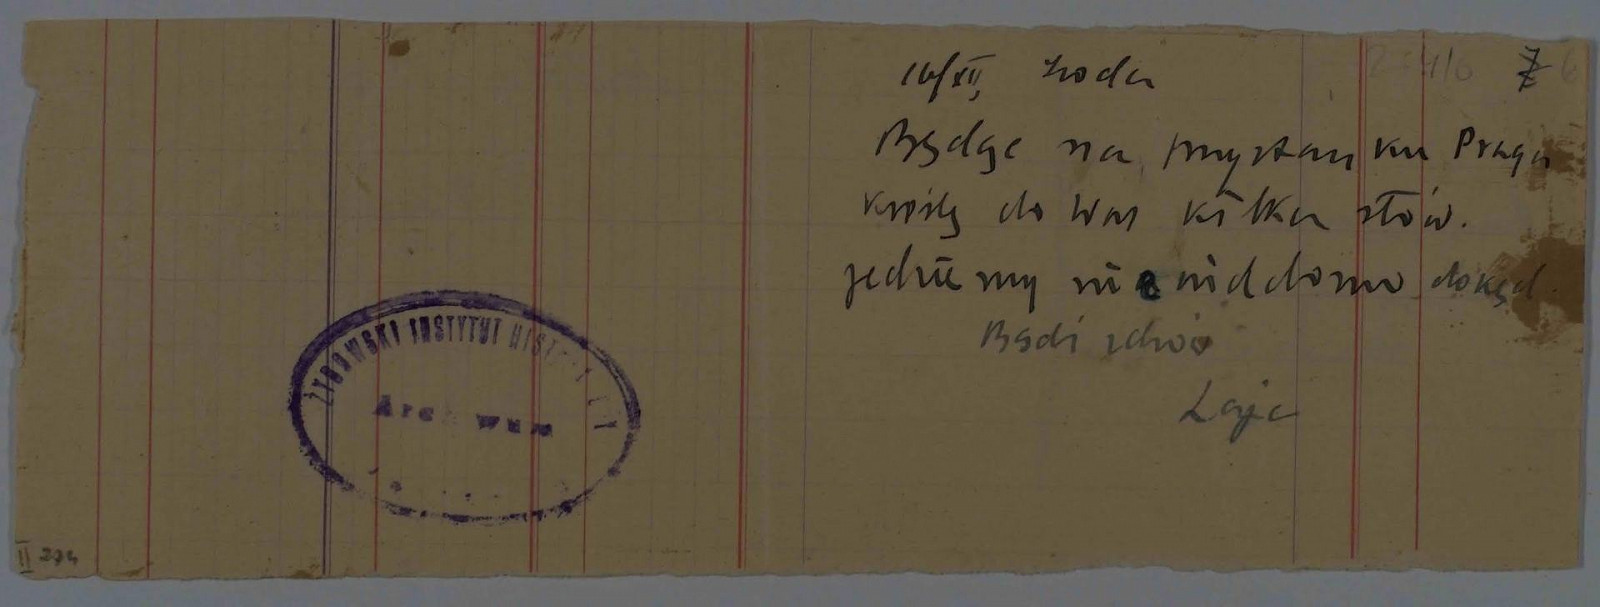 16/XII, środa
Będąc na przystanku Praga
kreślę do Was kilka słów.
jedziemy nie wiadomo dokąd.
Bądź zdrów
Laja
ŻYDOWSKI INSTYTUT HIST
Archiwum
II 274